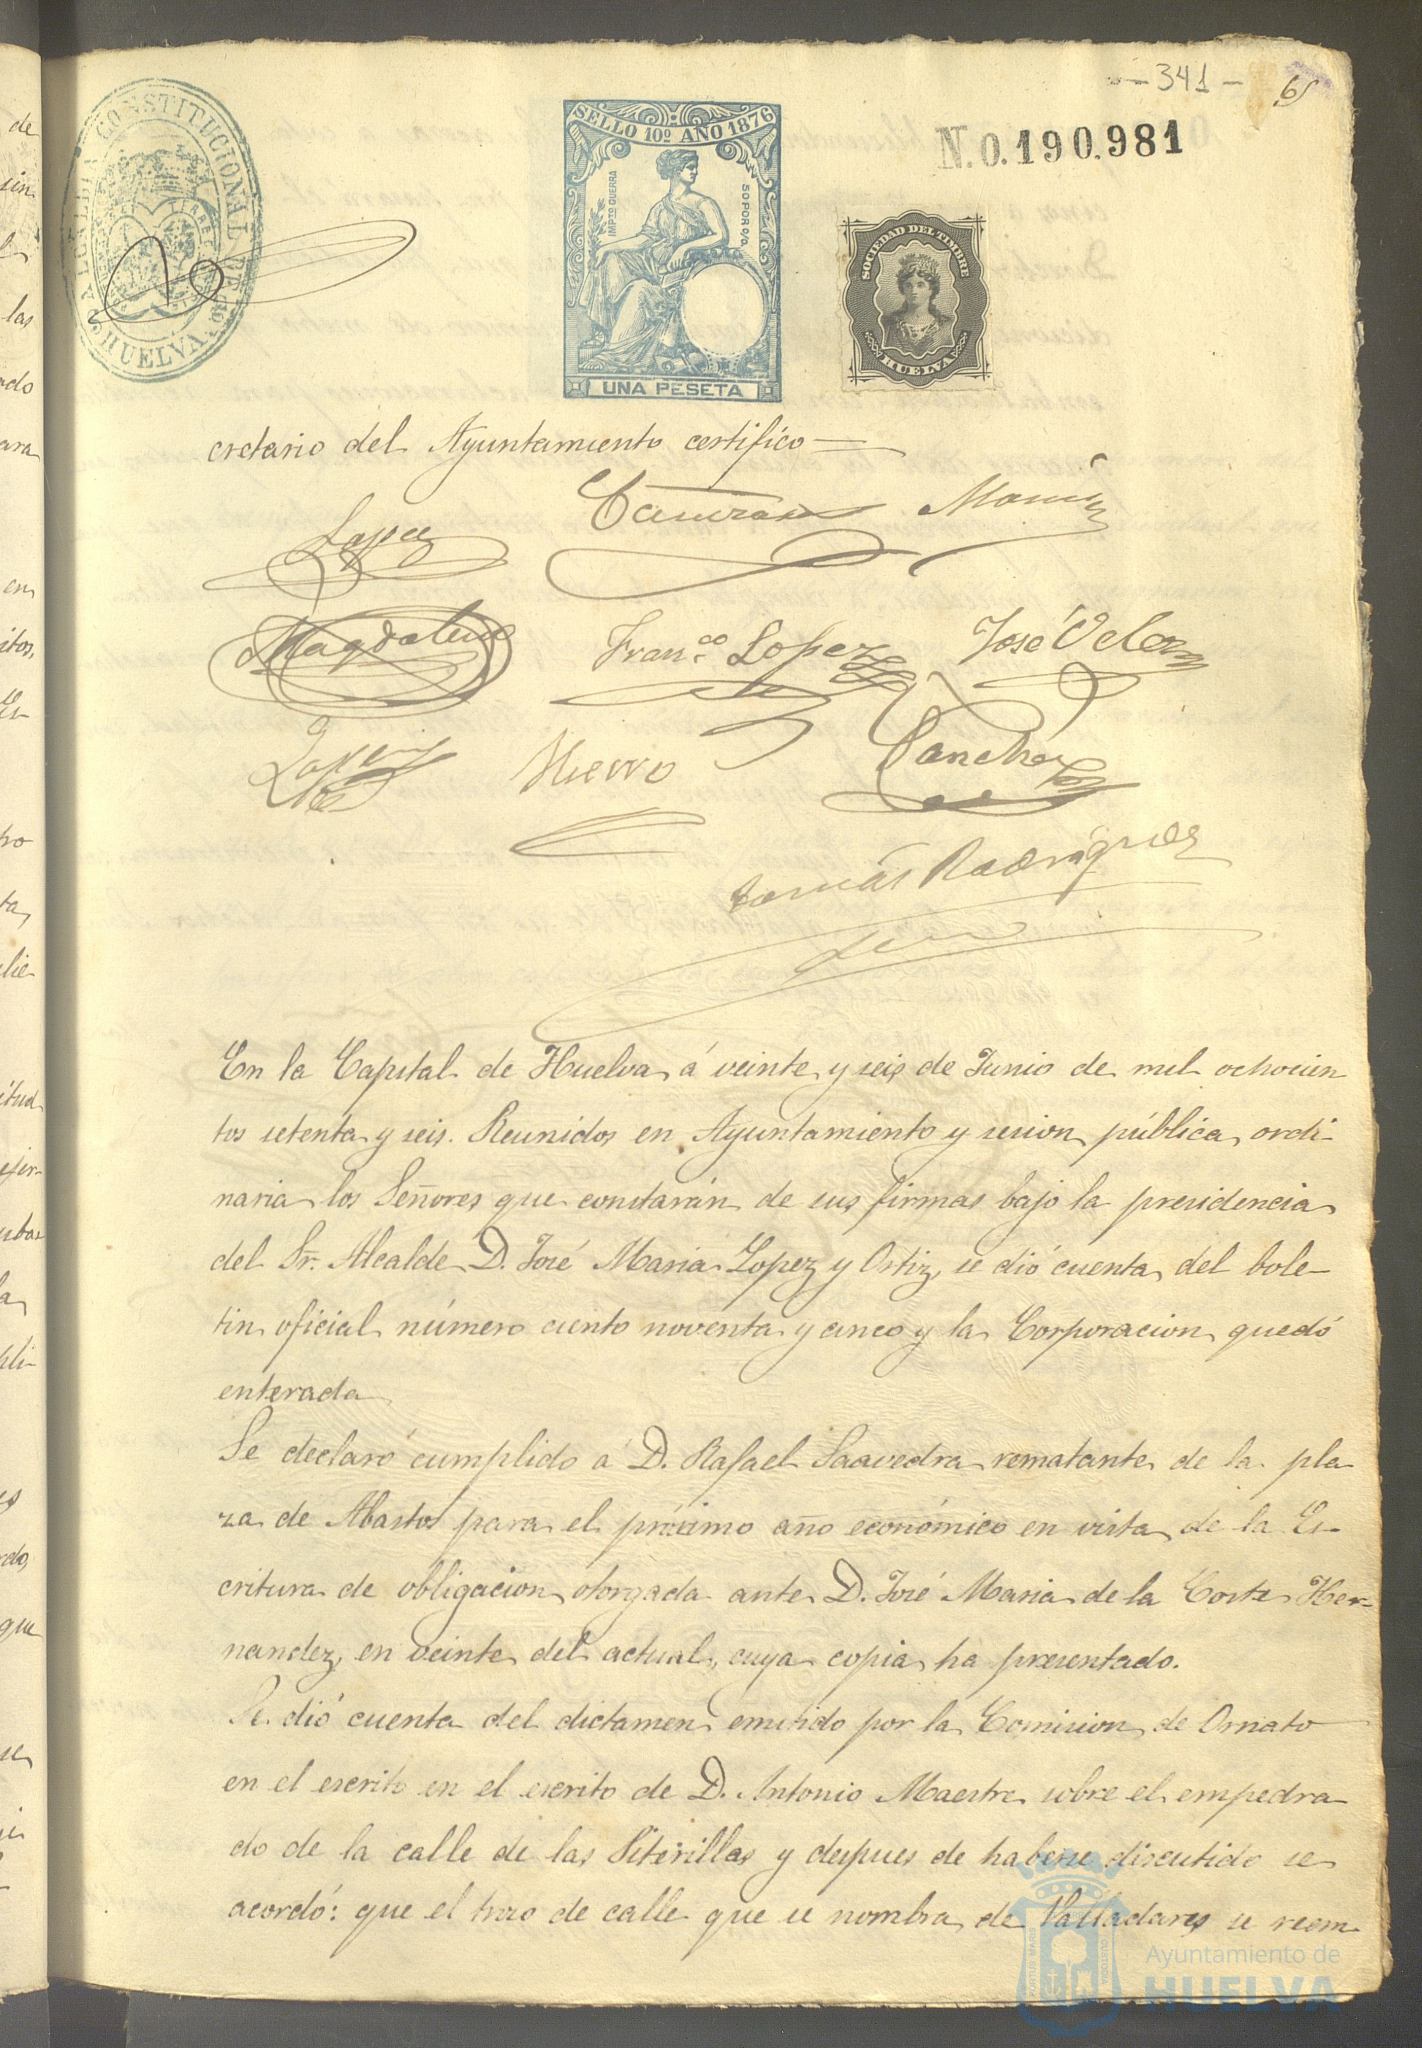 - 341 -
65
ALCALDIA CONSTITUCIONAL DE HUELVA
SELLO 10º AÑO 1876
IMPTO GUERRA
50 POR 0/0
UNA PESETA
N.0.190.981
SOCIEDAD DEL TIMBRE
HUELVA
cretario del Ayuntamiento certifico =
Lopez
Marin
Magdalena
Fran.co Lopez
José Velez
Hierro
Sanchez
Tomás Rodriguez
En la Capital de Huelva á veinte y seis de Junio de mil ochocien
tos setenta y seis. Reunidos en Ayuntamiento y sesion pública ordi-
naria los Señores que constarán de sus firmas bajo la presidencia
del Sr. Alcalde D. José Maria Lopez y Ortiz, se dió cuenta del bole-
tin oficial número ciento noventa y cinco y la Corporacion quedó
enterada
Se declaró cumplido á D. Rafael Saavedra rematante de la pla
za de Abastos para el próximo año económico en vista de la Es-
critura de obligacion otorgada ante D. José Maria de la Corte Her-
nandez, en veinte del actual, cuya copia ha presentado.
Se dió cuenta del dictamen emitido por la Comision de Ornato
en el escrito en el escrito de D. Antonio Maestre sobre el empedra-
do de la calle de las Siterillas y despues de haberse discutido se
acordó: que el trozo de calle que se nombra de Valladares se reem-
Ayuntamiento de
HUELVA